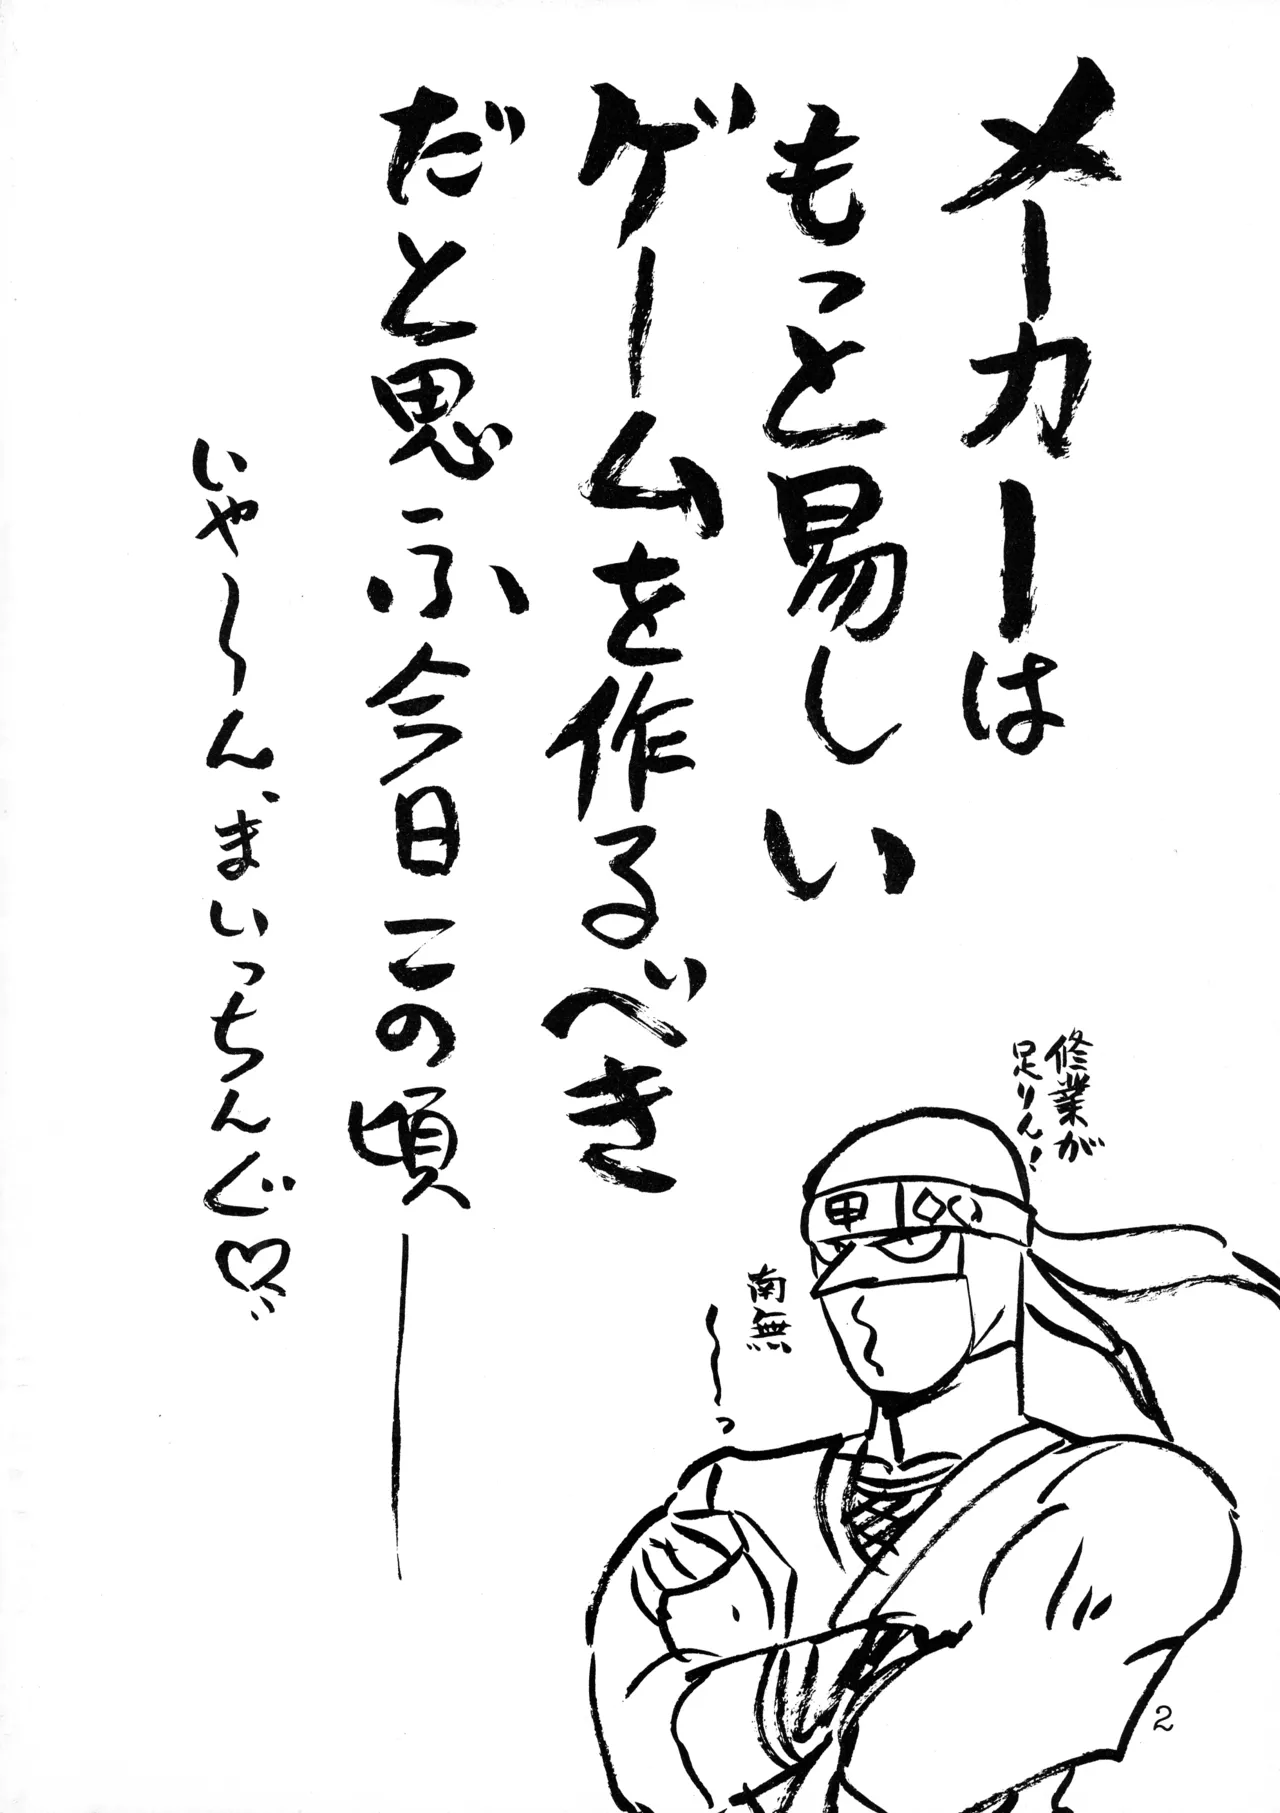 メーカーは
もっと易しい
ゲームを作るべき
だと思ふ今日この頃―
いや～ん、まいっちんぐ♡
修業が
足りん！
南無
～～っ
甲
2